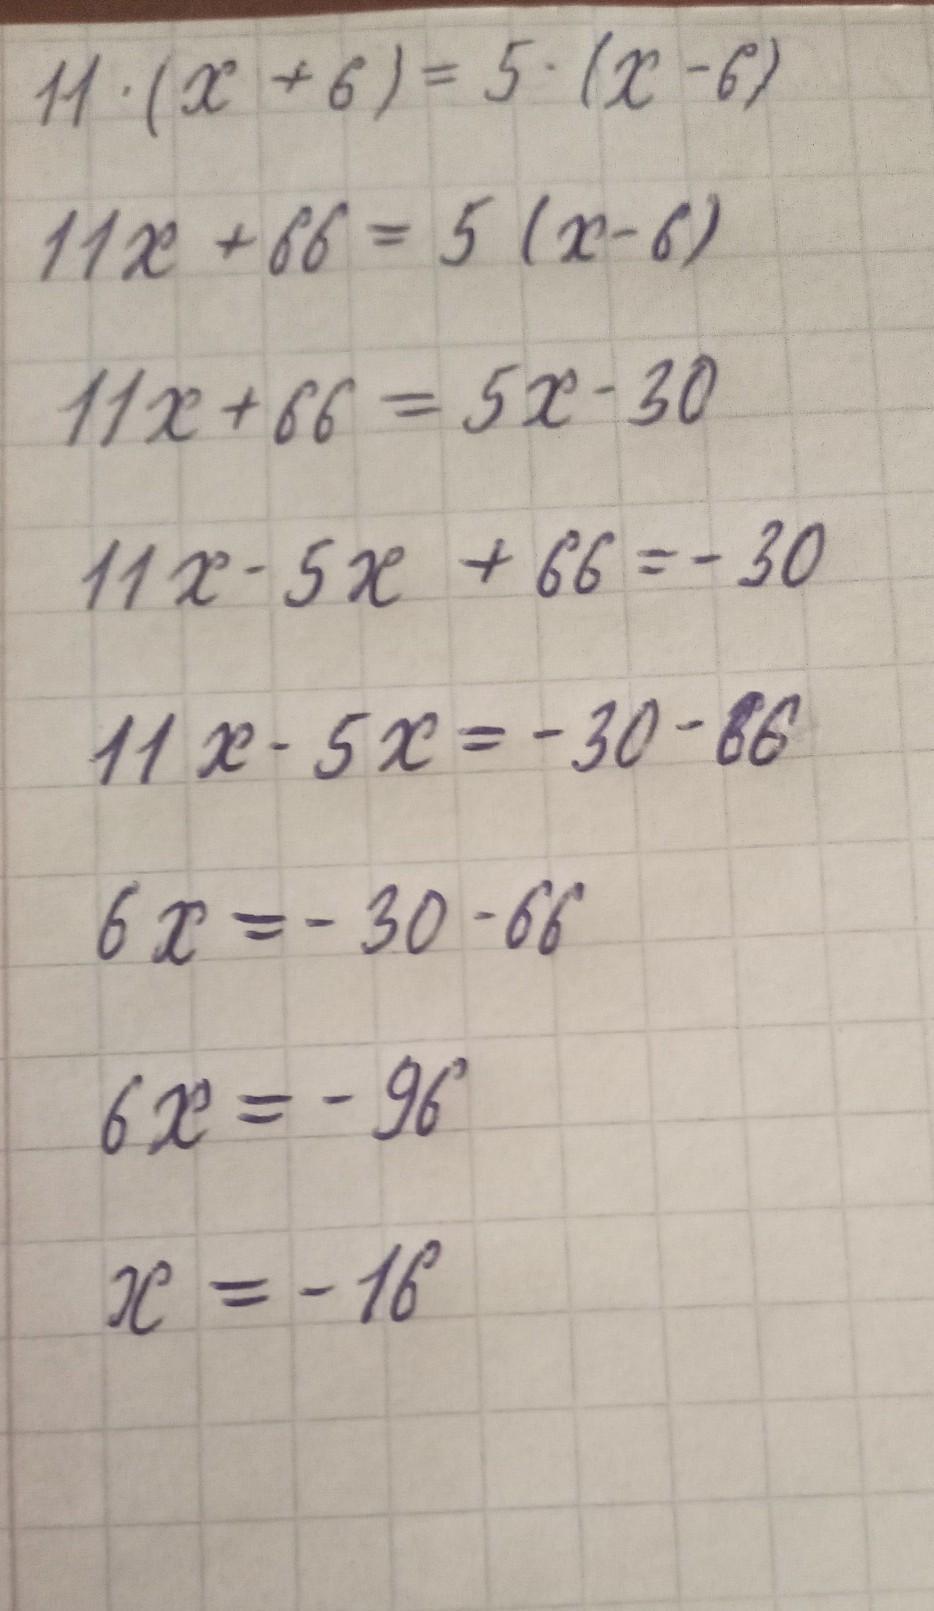 11·(x + 6) = 5·(x - 6)
11x + 66 = 5 (x - 6)
11x + 66 = 5x - 30
11x - 5x + 66 = - 30
11x - 5x = - 30 - 66
6x = - 30 - 66
6x = - 96
x = - 16